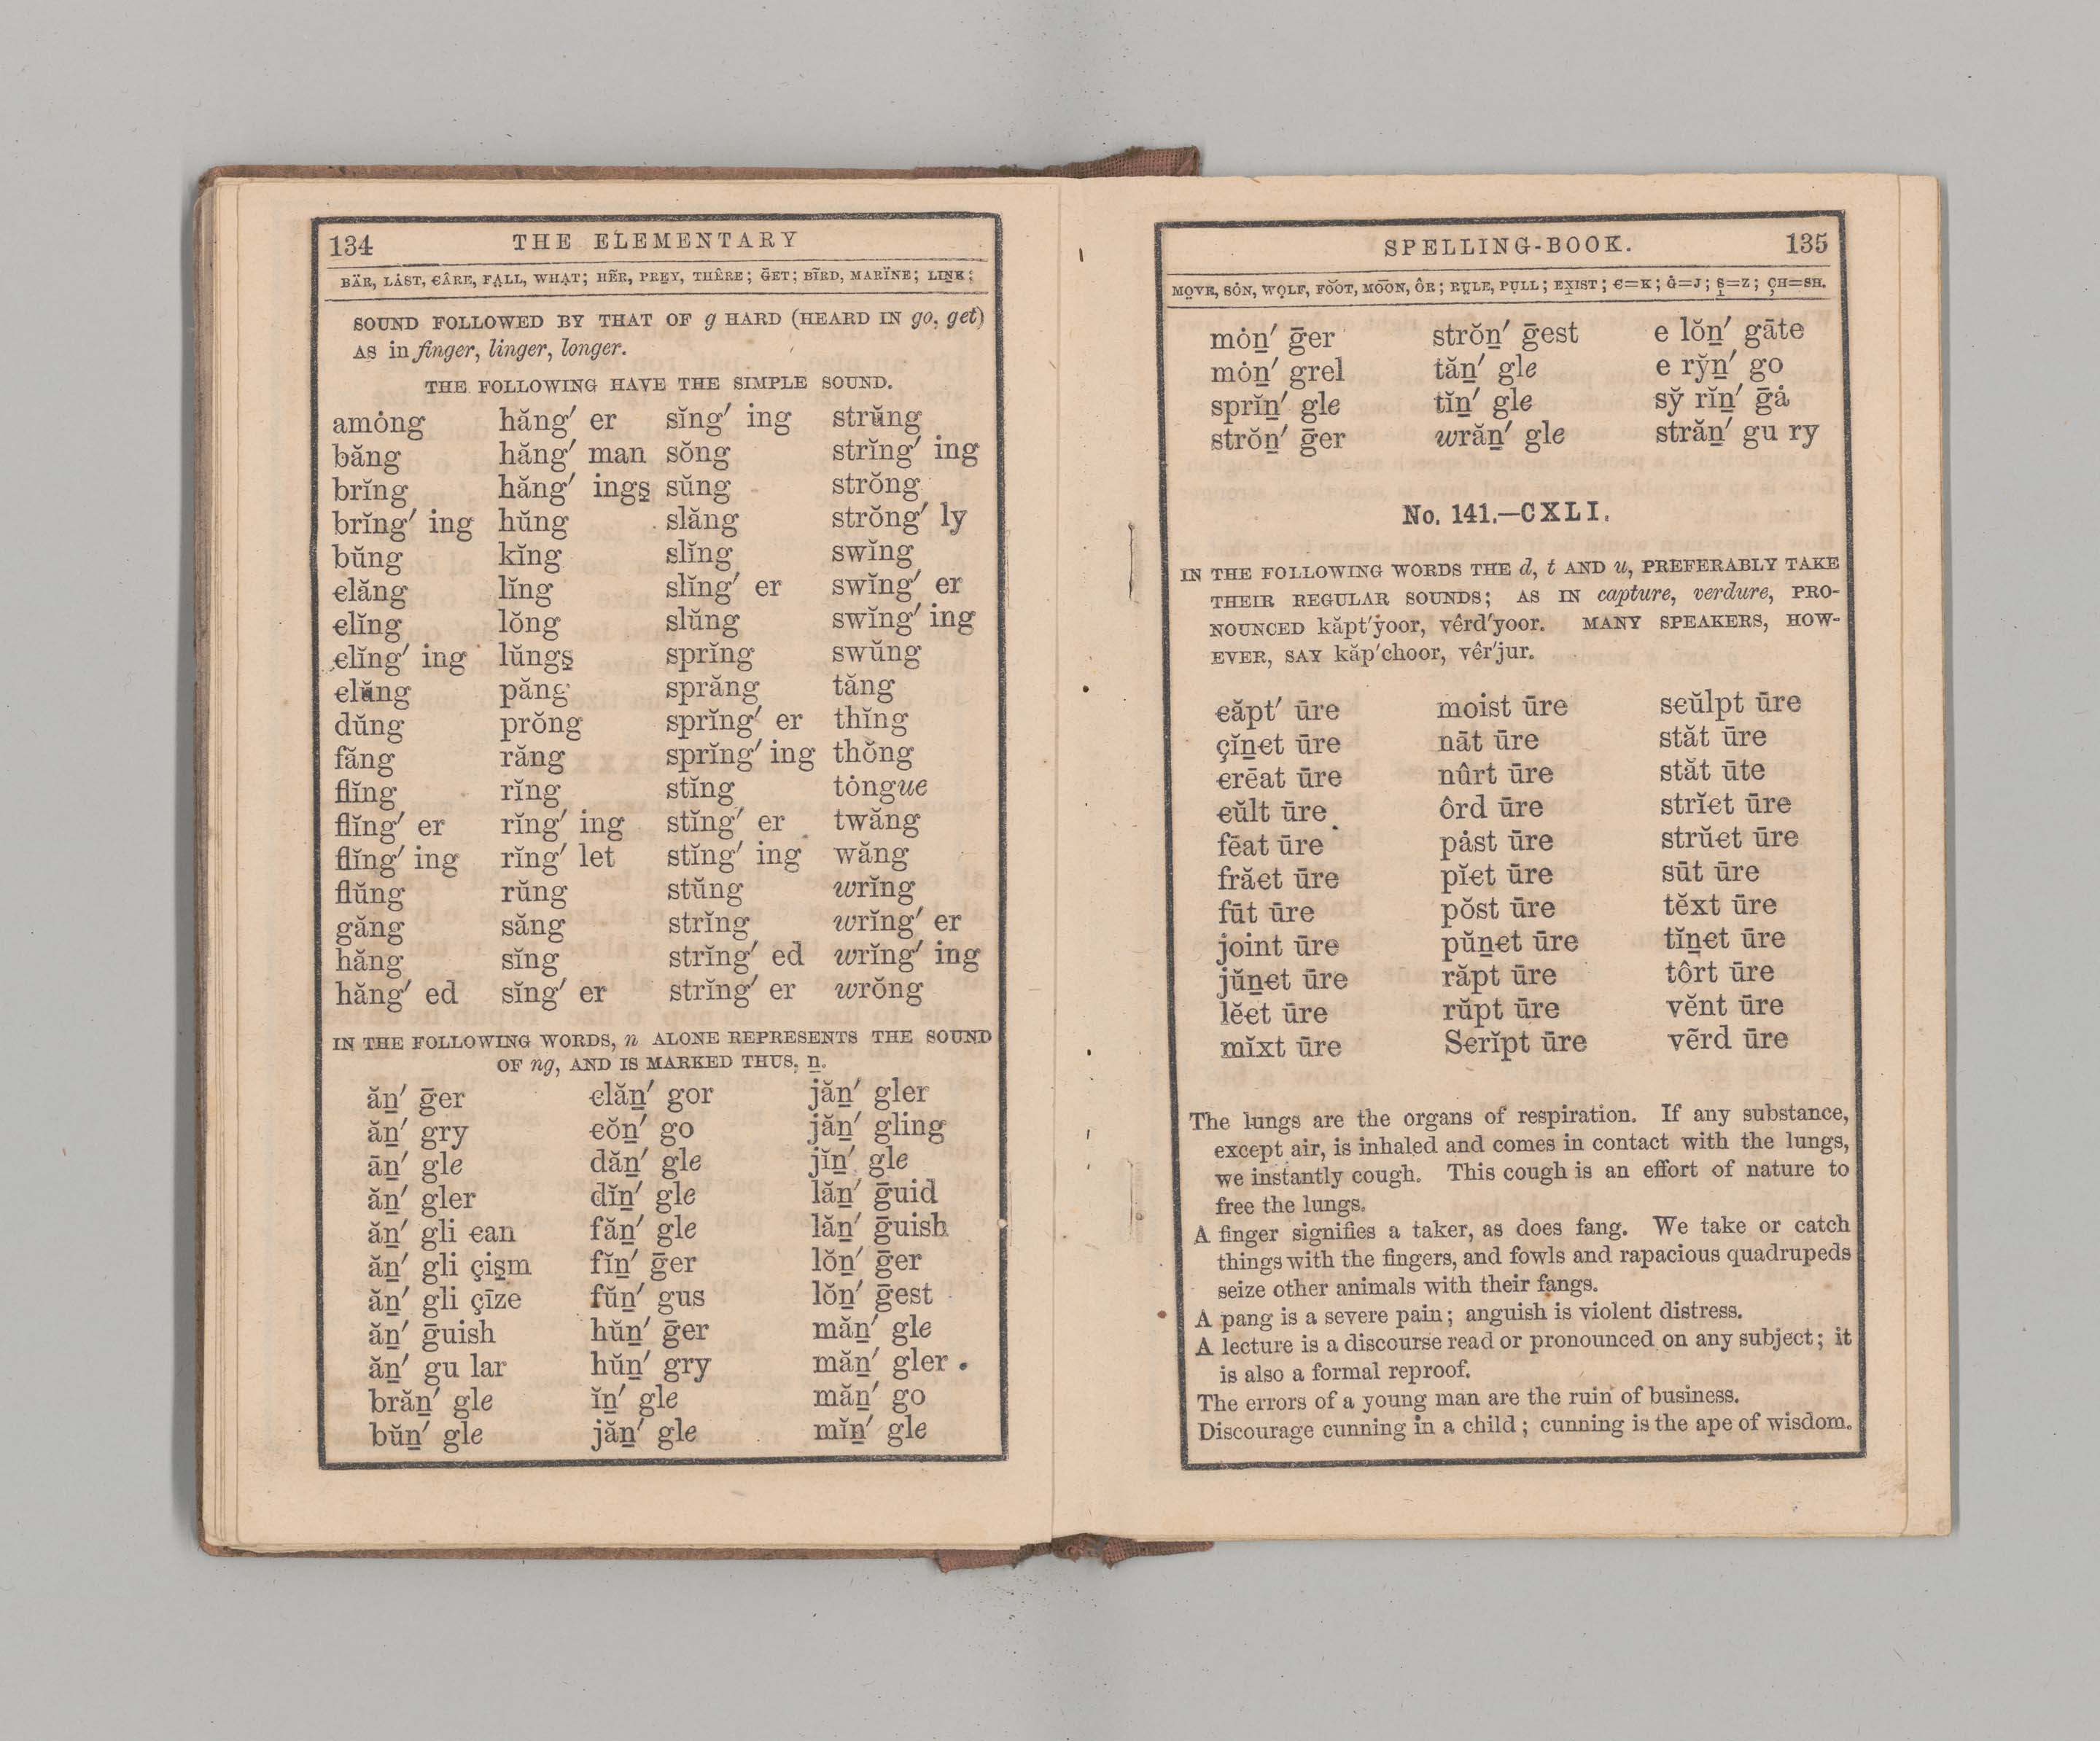 134 THE ELEMENTARY
BÄR, LȦST, ЄÂRE, FA̤LL, WHA̤T; HẼR, PRE̱Y, THÊRE; ḠET; BĨRD, MARÏNE; LIN̲K;
SOUND FOLLOWED BY THAT OF g HARD (HEARD IN go, get)
AS in finger, linger, longer.
THE FOLLOWING HAVE THE SIMPLE SOUND.
amȯng hăng′ er sĭng′ ing strŭng
băng hăng′ man sŏng strĭng′ ing
brĭng hăng′ ings̱ sŭng strŏng
brĭng′ ing hŭng slăng strŏng′ ly
bŭng kĭng slĭng swĭng
єlăng lĭng slĭng′ er swĭng′ er
єlĭng lŏng slŭng swĭng′ ing
єlĭng′ ing lŭngs̱ sprĭng swŭng
єlŭng păng sprăng tăng
dŭng prŏng sprĭng′ er thĭng
făng răng sprĭng′ ing thŏng
flĭng rĭng stĭng tȯngue
flĭng′ er rĭng′ ing stĭng′ er twăng
flĭng′ ing rĭng′ let stĭng′ ing wăng
flŭng rŭng stŭng wrĭng
găng săng strĭng wrĭng′ er
hăng sĭng strĭng′ ed wrĭng′ ing
hăng′ ed sĭng′ er strĭng′ er wrŏng
IN THE FOLLOWING WORDS, n ALONE REPRESENTS THE SOUND
OF ng, AND IS MARKED THUS, n̲.
ăn̲′ ḡer єlăn̲′ gor jăn̲′ gler
ăn̲′ gry єŏn̲′ go jăn̲′ gling
ān̲′ gle dăn̲′ gle jĭn̲′ gle
ăn̲′ gler dĭn̲′ gle lăn̲′ ḡuid
ăn̲′ gli єan făn̲′ gle lăn̲′ ḡuish
ăn̲′ gli çis̱m fĭn̲′ ḡer lŏn̲′ ḡer
ăn̲′ gli çīze fŭn̲′ gus lŏn̲′ ḡest
ăn̲′ ḡuish hŭn̲′ ḡer măn̲′ gle
ăn̲′ gu lar hŭn̲′ gry măn̲′ gler
brăn̲′ gle ĭn̲′ gle măn̲′ go
bŭn̲′ gle jăn̲′ gle mĭn̲′ gle
SPELLING-BOOK. 135
MO̤VE, SȮN, WO̤LF, FO͝OT, MO͞ON, ÔR; RṲLE, PṲLL; EX̱IST; Є=K; Ġ=J; S̱=Z; ÇH=SH.
mȯn̲′ ḡer strŏn̲′ ḡest e lŏn̲′ gāte
mȯn̲′ grel tăn̲′ gle e ry̆n̲′ go
sprĭn̲′ gle tĭn̲′ gle sy̆ rĭn̲′ ḡȧ
strŏn̲′ ḡer wrăn̲′ gle străn̲′ gu ry
No. 141.—CXLI.
IN THE FOLLOWING WORDS THE d, t AND u, PREFERABLY TAKE
THEIR REGULAR SOUNDS; AS IN capture, verdure, PRO-
NOUNCED kăpt′yoor, vêrd′yoor. MANY SPEAKERS, HOW-
EVER, SAY kăp′choor, vêr′jur.
єăpt′ ūre moist ūre sєŭlpt ūre
çĭn̲єt ūre nāt ūre stăt ūre
єrēat ūre nûrt ūre stăt ūte
єŭlt ūre ôrd ūre strĭєt ūre
fēat ūre pȧst ūre strŭєt ūre
frăєt ūre pĭєt ūre sūt ūre
fūt ūre pŏst ūre tĕxt ūre
joint ūre pŭn̲єt ūre tĭn̲єt ūre
jŭn̲єt ūre răpt ūre tôrt ūre
lĕєt ūre rŭpt ūre vĕnt ūre
mĭxt ūre Sєrĭpt ūre vẽrd ūre
The lungs are the organs of respiration. If any substance,
except air, is inhaled and comes in contact with the lungs,
we instantly cough. This cough is an effort of nature to
free the lungs.
A finger signifies a taker, as does fang. We take or catch
things with the fingers, and fowls and rapacious quadrupeds
seize other animals with their fangs.
A pang is a severe pain; anguish is violent distress.
A lecture is a discourse read or pronounced on any subject; it
is also a formal reproof.
The errors of a young man are the ruin of business.
Discourage cunning in a child; cunning is the ape of wisdom.